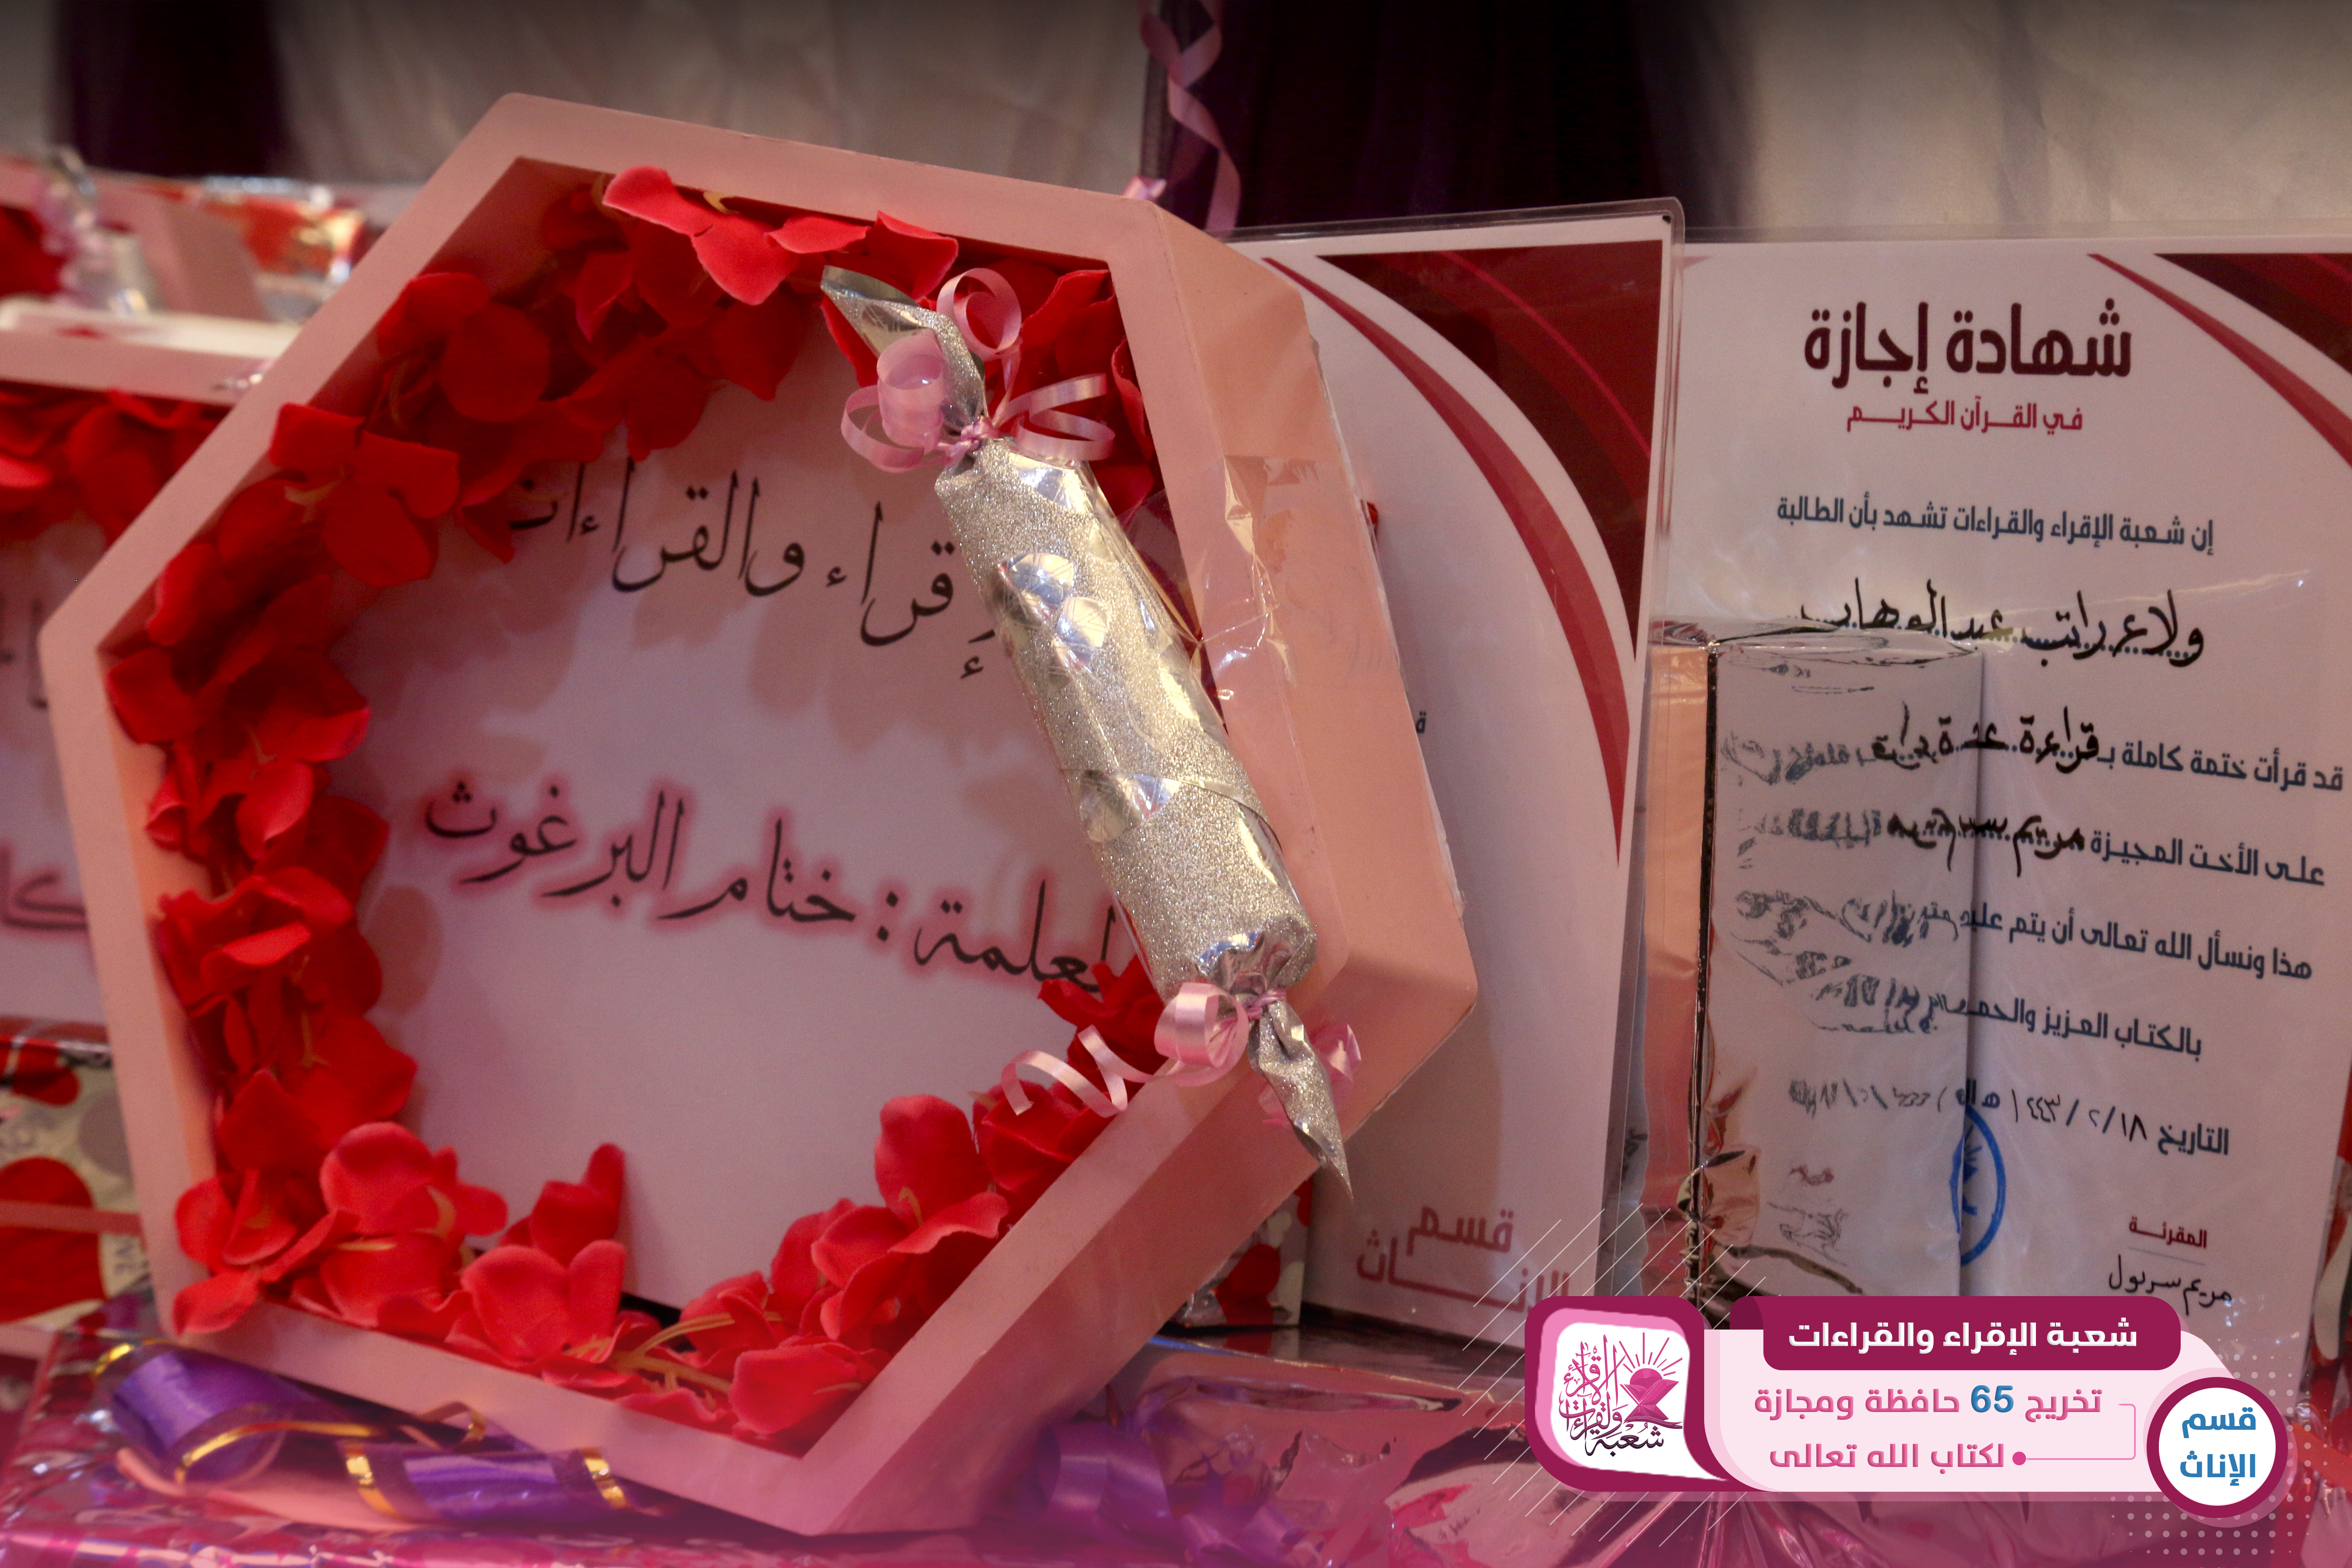 إقراء والقراءات
المعلمة : ختام البرغوث
قسم
الإناث
شهادة إجازة
في القرآن الكريم
إن شعبة الإقراء والقراءات تشهد بأن الطالبة
ولاء راتب عبدالوهاب
قد قرأت ختمة كاملة بـ قراءة
على الأخت المجيزة مريم
هذا ونسأل الله تعالى أن يتم عليه
بالكتاب العزيز والحمد
التاريخ ١٨ / ٢ / ١٤٤٣ هـ
المقرئة
مريم سريول
شعبة الإقراء والقراءات
تخريج 65 حافظة ومجازة
لكتاب الله تعالى
قسم
الإناث
شعبة الإقراء والقراءات